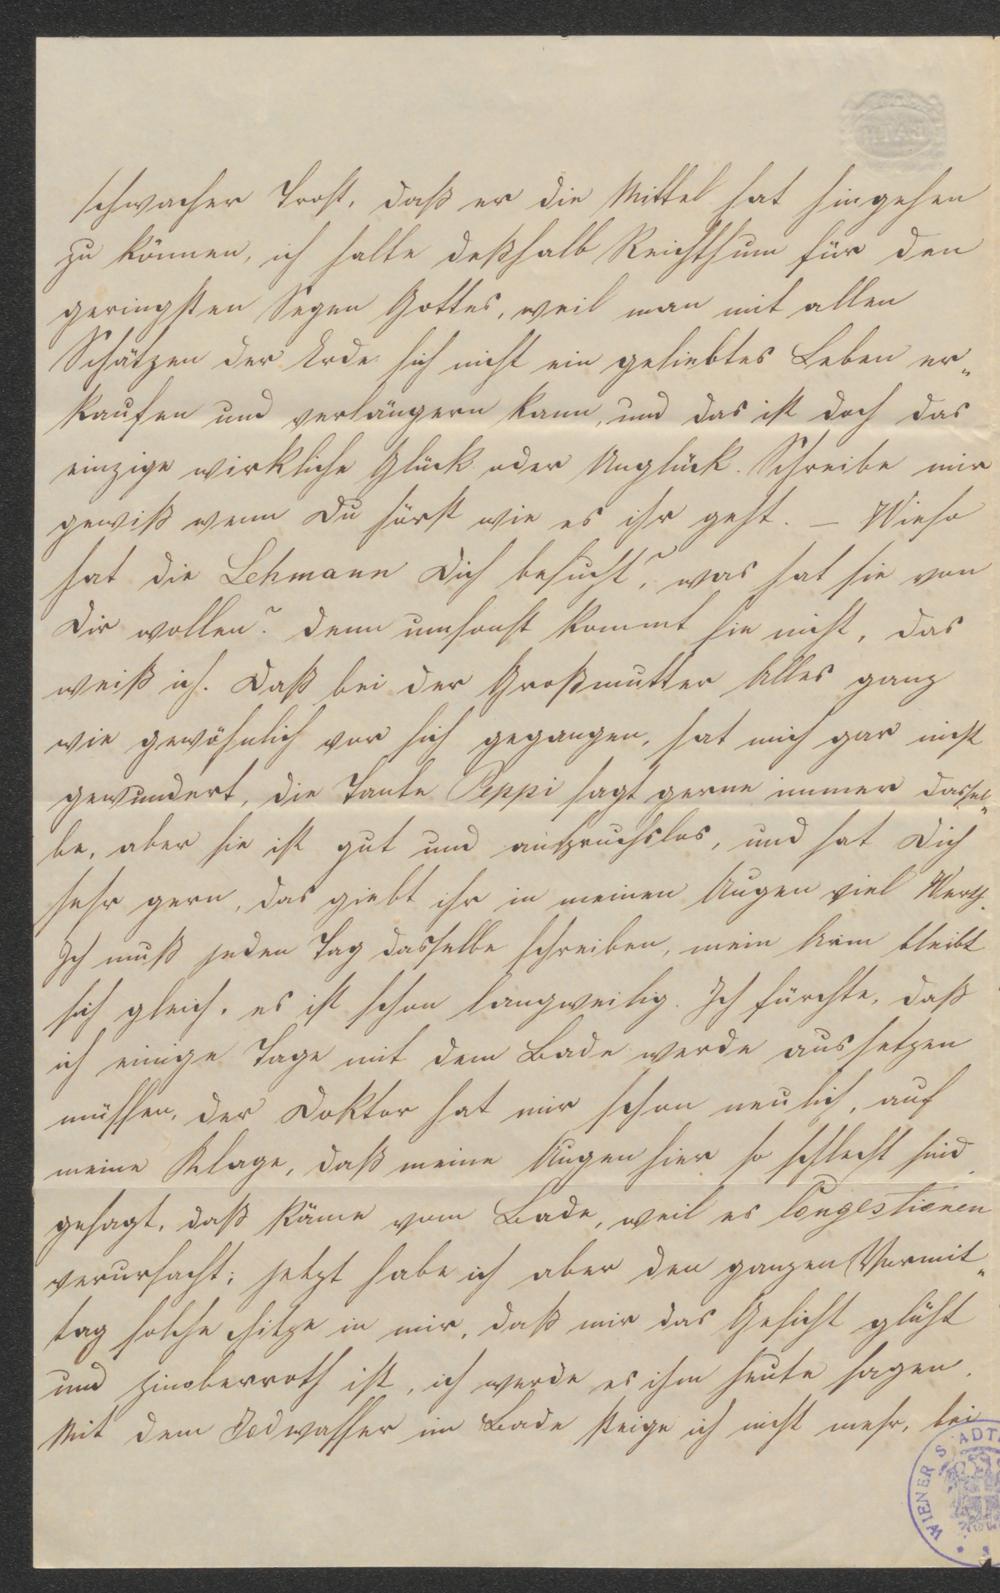 schwacher Trost, daß er die Mittel hat hingehen
zu können, ich halte deßhalb Reichthum für den
geringsten Segen Gottes, weil man mit allen
Schätzen der Erde sich nicht ein geliebtes Leben er„
kaufen und verlängern kann, und das ist doch das
einzige wirkliche Glück oder Unglück. Schreibe mir
gewiß wenn Du hörst wie es ihr geht. – Wieso
hat die Lehmann Dich besucht?, was hat sie von
Dir wollen? denn umsonst kommt sie nicht, das
weiß ich. Daß bei der Großmutter Alles ganz
wie gewöhnlich vor sich gegangen, hat mich gar nicht
gewundert, die Tante Peppi sagt gerne immer dassel„
be, aber sie ist gut und anspruchslos, und hat Dich
sehr gern, das giebt ihr in meinen Augen viel Werth.
Ich muß jeden Tag dasselbe schreiben, mein Arm bleibt
sich gleich, es ist schon langweilig. Ich fürchte, daß
ich einige Tage mit dem Bade werde aussetzen
müssen, der Doktor hat mir schon neulich, auf
meine Klage, daß meine Augen hier so schlecht sind
gesagt, daß käme vom Bade, weil es Congestionen
verursacht; jetzt habe ich aber den ganzen Vormit„
tag solche Hitze in mir, daß mir das Gesicht glüht
und zinoberroth ist, ich werde es ihm heute sagen.
Mit dem Jodwasser im Bade steige ich nicht mehr, bei
WIENER STADT